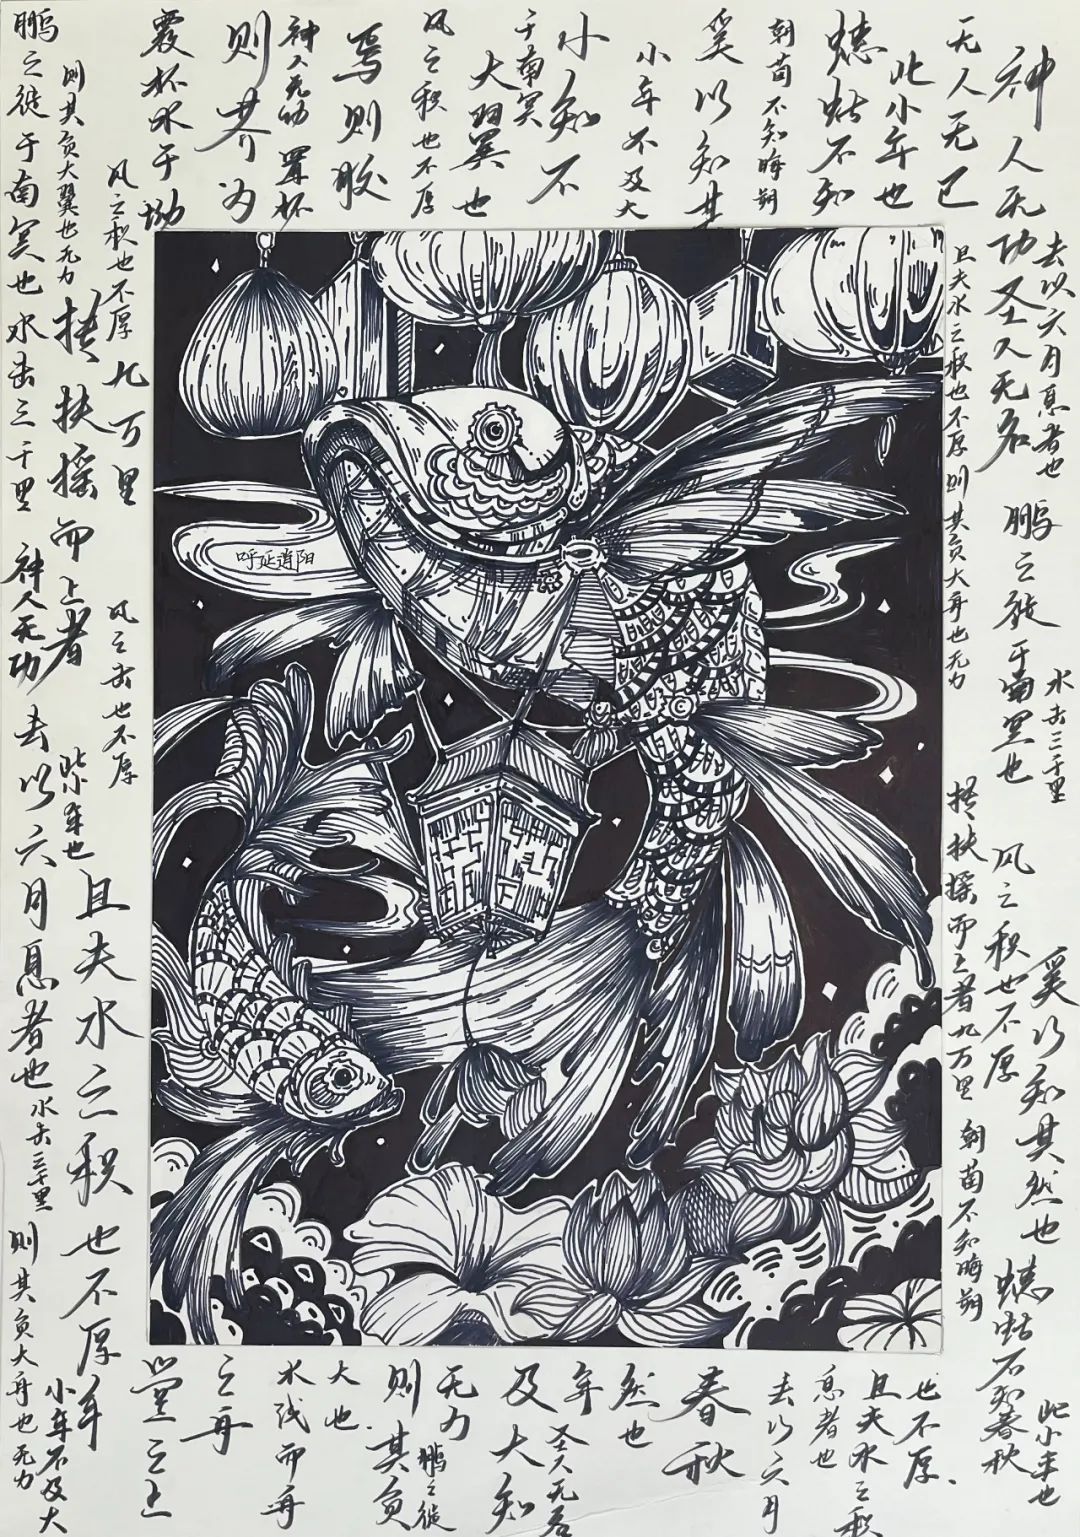 神人无功圣人无名
去以六月息者也
鹏之徙于南冥也
水击三千里
风之积也不厚
奚以知其然也
蟪蛄不知春秋
此小年也
无人无已
且夫水之积也不厚则其负大舟也无力
抟扶摇而上者九万里
朝菌不知晦朔
此小年也
蟪蛄不知
朝菌不知晦朔
奚以知其
小年不及大
小知不
于南冥
大翼也
风之积也不厚
焉则胶
神人无功
置杯
则芥为
覆杯水于坳
风之积也不厚
九万里
风之击也不厚
则其负大翼也无力
抟扶摇而上者
此小年也
且夫水之积也不厚
年
鹏之徙于南冥也
水击三千里
神人无功
去以六月息者也
水击三千里
则其负大舟也无力
小年不及大
呼延逍阳
也不厚
且夫水之积
息者也
去以六月
春秋
然也
年
圣人无名
及大知
无力
鹏之徙
则其负
大也
水浅而舟
之舟
堂之上